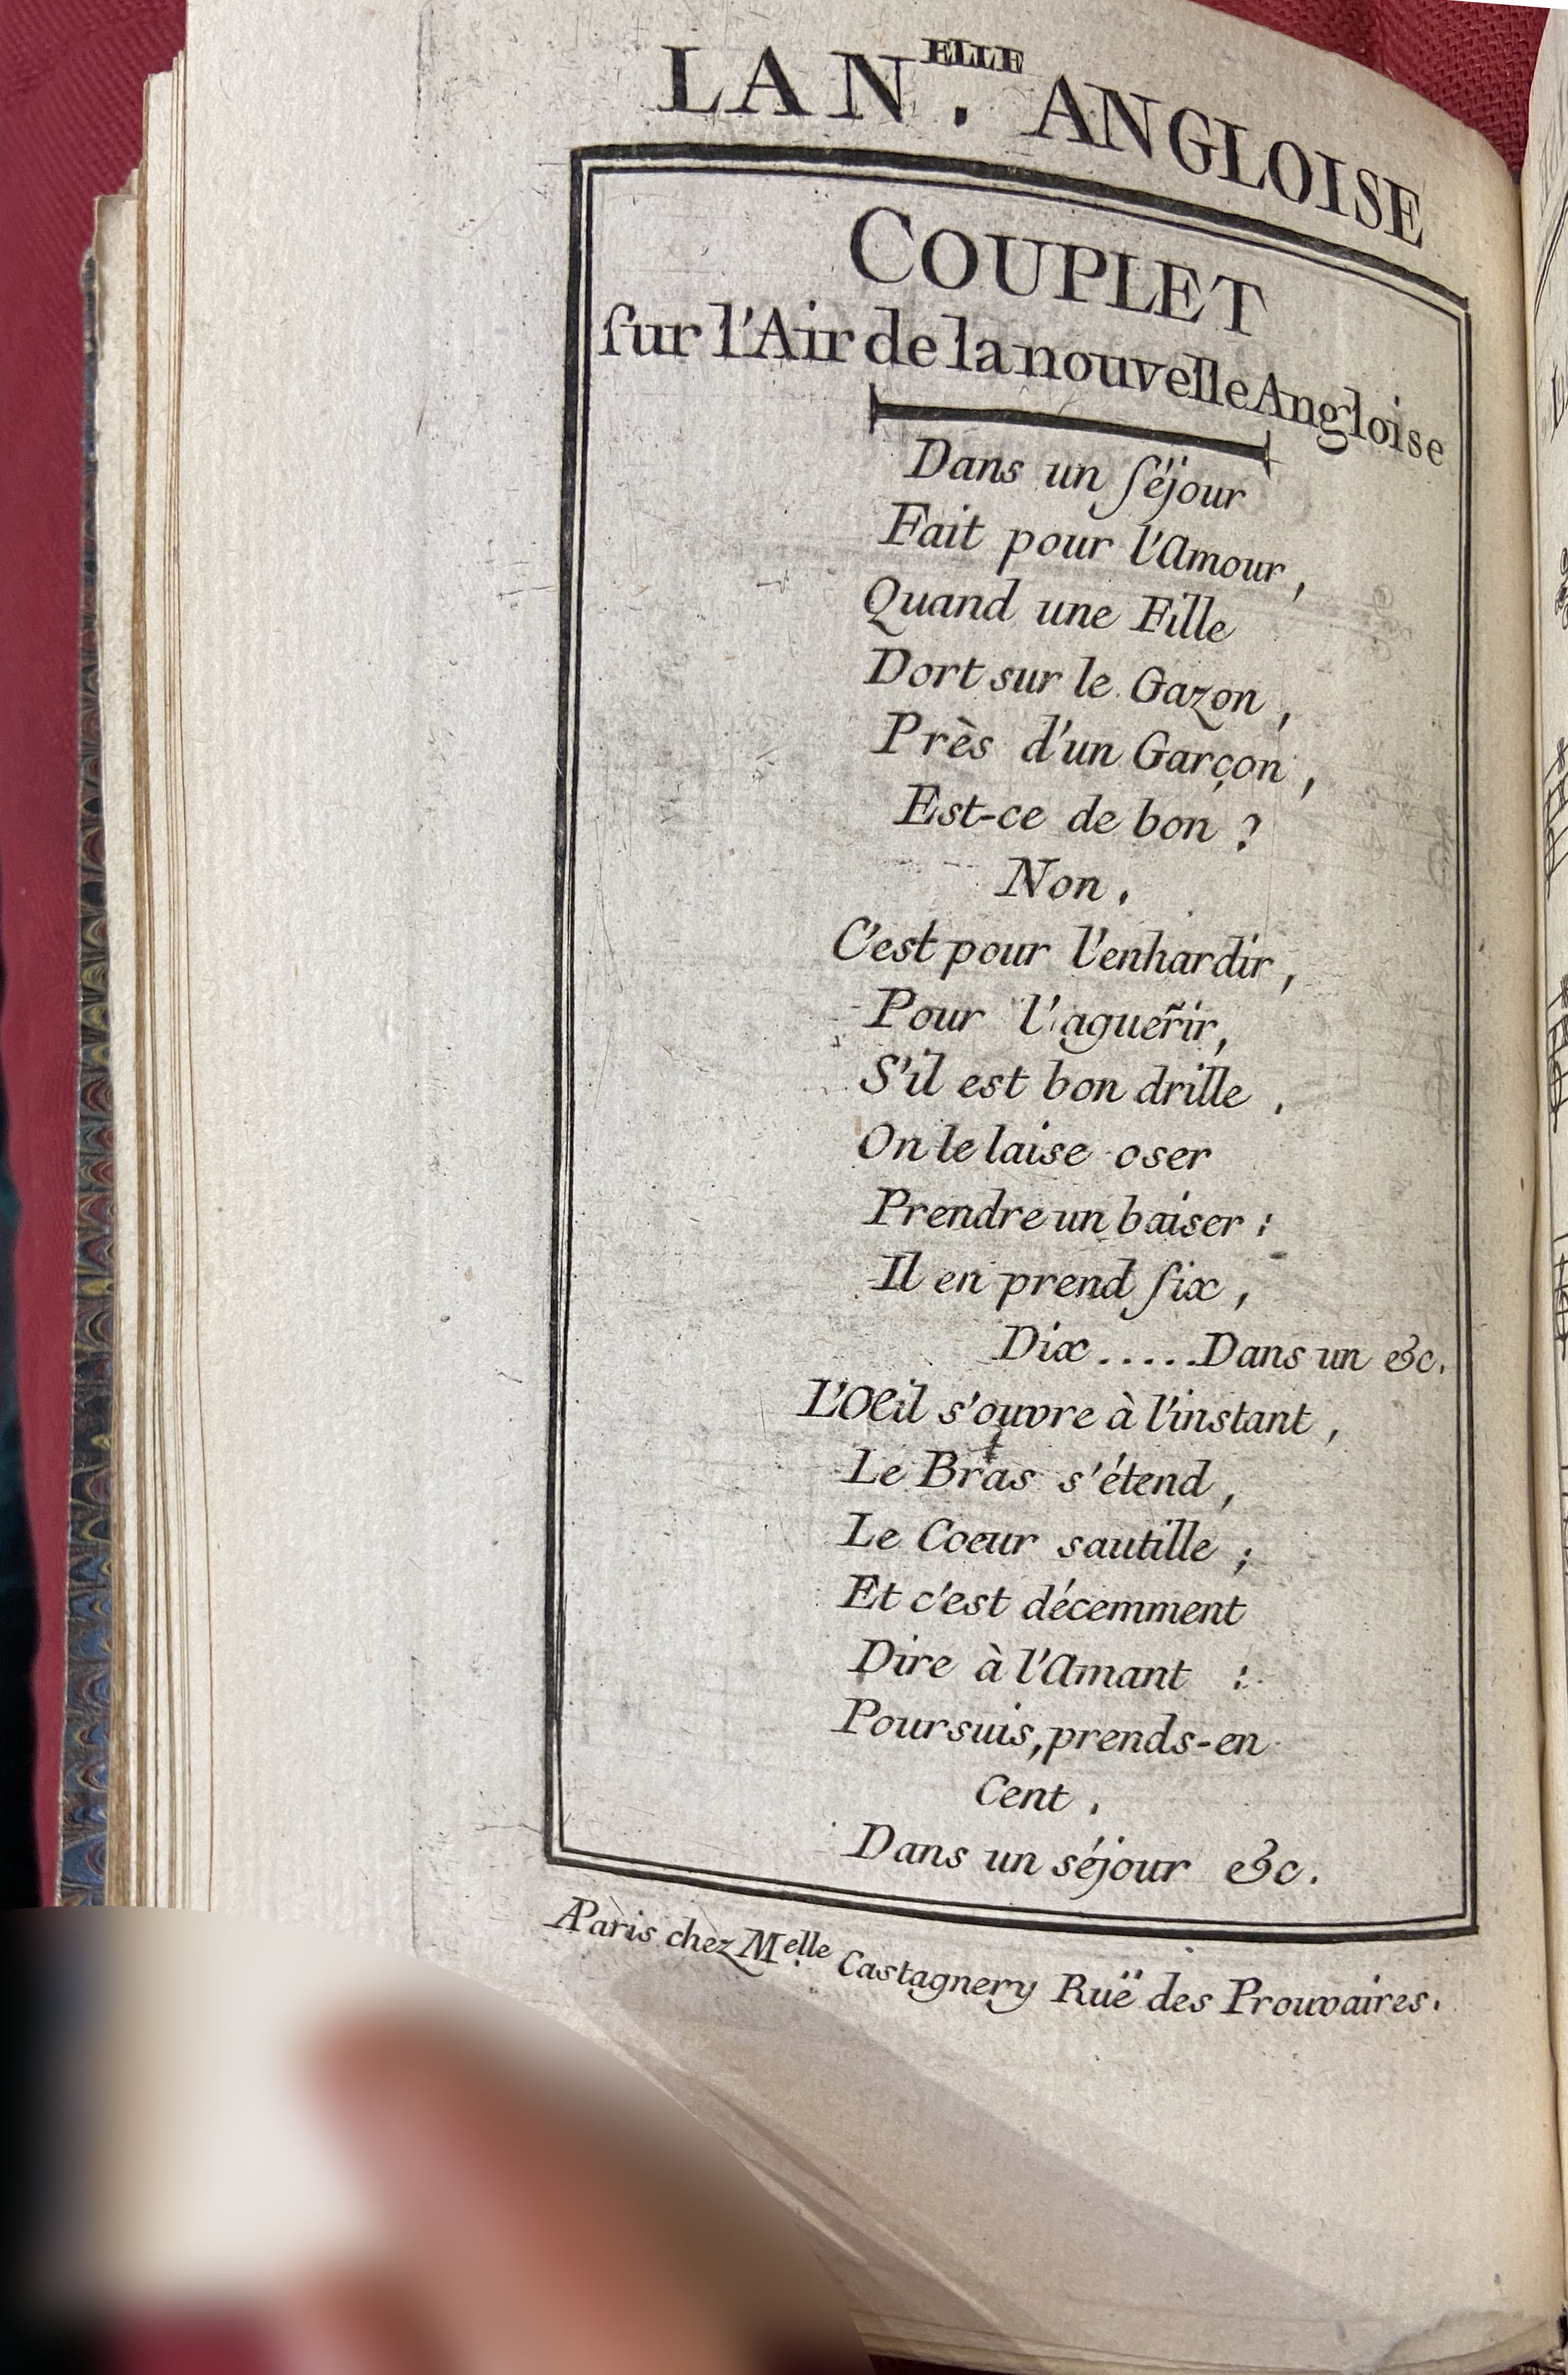 LA N.ELLE ANGLOISE
COUPLET
ſur l'Air de la nouvelle Angloise
Dans un ſéjour
Fait pour l'Amour,
Quand une Fille
Dort sur le Gazon,
Près d'un Garçon,
Est-ce de bon ?
Non,
C'est pour l'enhardir,
Pour l'aguer̃ir,
S'il est bon drille,
On le laise oser
Prendre un baiser :
Il en prend ſix,
Dix.....Dans un &c.
L'Oeil s'ouvre à l'instant,
Le Bras s'étend,
Le Coeur sautille ;
Et c'est décemment
Dire à l'Amant :
Poursuis, prends-en
Cent,
Dans un séjour &c.
A Paris chez M.elle Castagnery Ruë des Prouvaires.